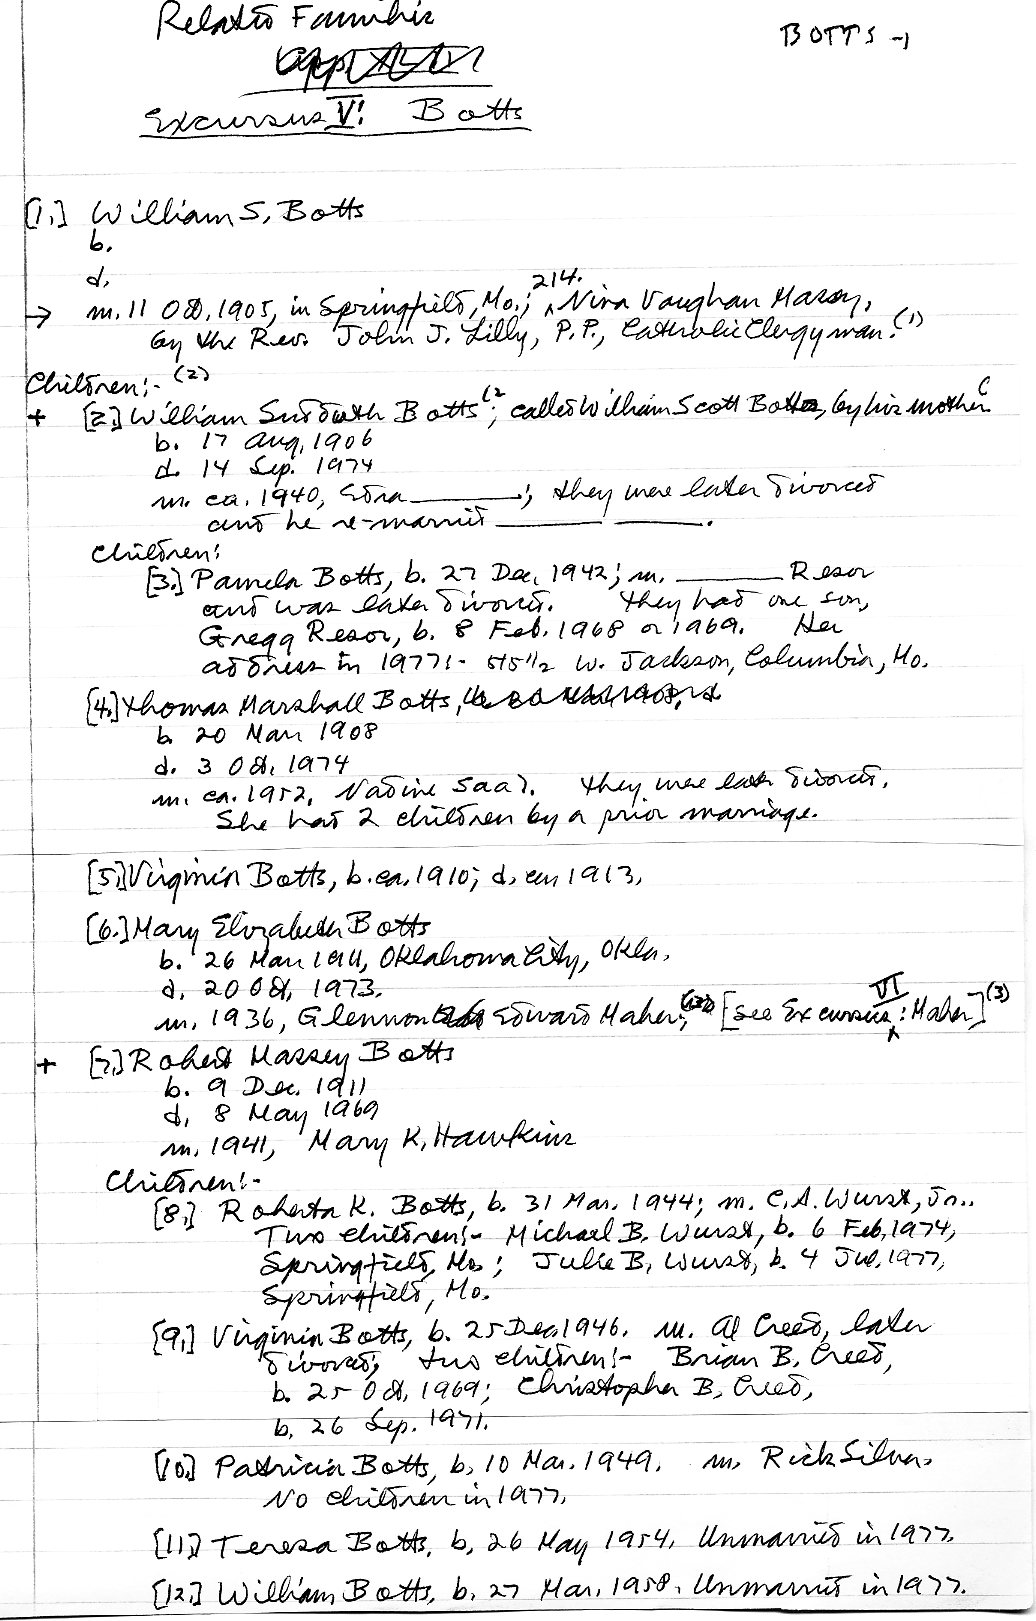 Related Families
BOTTS -1
Excursus V: Botts
[1.] William S. Botts
b.
d.
→ m. 11 Oct. 1905, in Springfield, Mo.; 214. Nina Vaughan Massey,
by the Rev. John J. Lilly, P.P., Catholic Clergyman. (1)
Children:- (2)
+ [2.] William Sudduth Botts (2; called William Scott Botts, by his mother
b. 17 Aug. 1906
d. 14 Sep. 1974
m. ca. 1940, Edna ________; they were later divorced
and he re-married ________ ________.
Children:
[3.] Pamela Botts, b. 27 Dec. 1942; m. ________ Resor
and was later divorced. They had one son,
Gregg Resor, b. 8 Feb. 1968 or 1969. Her
address in 1977:- 515 1/2 W. Jackson, Columbia, Mo.
[4.] Thomas Marshall Botts,
b. 20 Mar. 1908
d. 3 Oct. 1974
m. ca. 1952, Nadine Saad. They were later divorced.
She had 2 children by a prior marriage.
[5.] Virginia Botts, b. ca. 1910; d. ca. 1913.
[6.] Mary Elizabeth Botts
b. 26 Mar. 1911, Oklahoma City, Okla.
d. 20 Oct. 1973.
m. 1936, Glennon Edward Maher; [see Excursus VI: Maher] (3)
+ [7.] Robert Massey Botts
b. 9 Dec. 1911
d. 8 May 1969
m. 1941, Mary K. Hawkins
Children:-
[8.] Roberta K. Botts, b. 31 Mar. 1944; m. C.A. Wurst, Jr..
Two children:- Michael B. Wurst, b. 6 Feb. 1974,
Springfield, Mo.; Julle B. Wurst, b. 4 Jul. 1977,
Springfield, Mo.
[9.] Virginia Botts, b. 25 Dec. 1946. m. Al Creed, later
divorced; two children:- Brian B. Creed,
b. 25 Oct. 1969; Christopher B. Creed,
b. 26 Sep. 1971.
[10.] Patricia Botts, b. 10 Mar. 1949. m. Rick Silva.
No children in 1977.
[11.] Teresa Botts, b. 26 May 1954. Unmarried in 1977.
[12.] William Botts, b. 27 Mar. 1958. Unmarried in 1977.